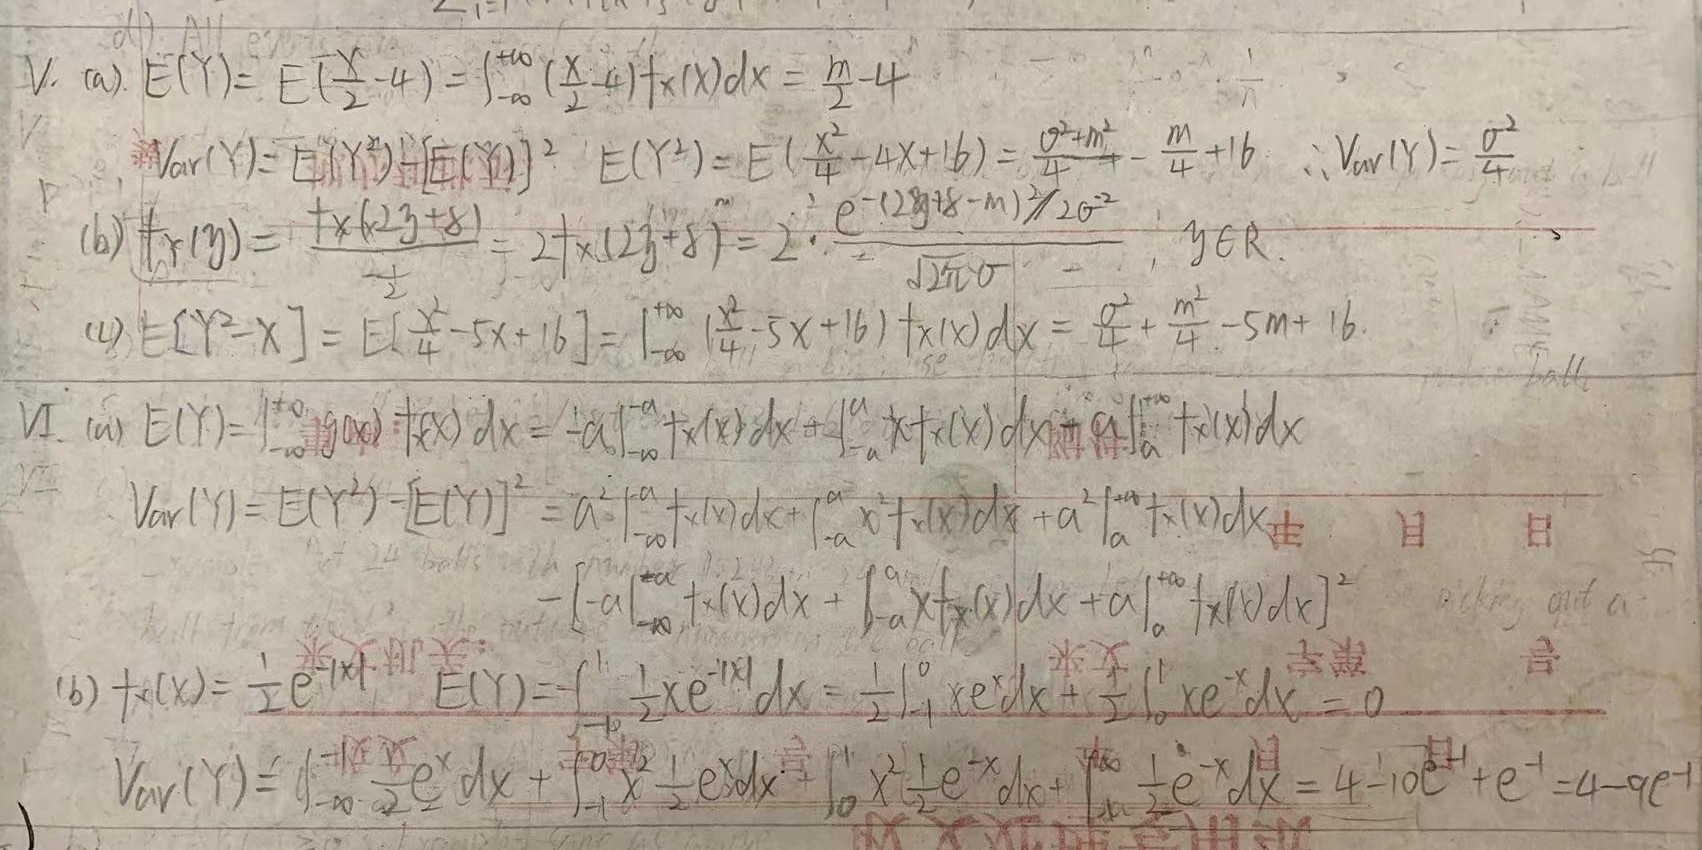 V. (a) E(Y) = E(X/2 - 4) = ∫_{-∞}^{+∞} (x/2 - 4) f_X(x) dx = m/2 - 4
Var(Y) = E(Y²) - [E(Y)]² E(Y²) = E(x²/4 - 4x + 16) = (σ²+m²)/4 - m/4 + 16 ∴ Var(Y) = σ²/4
(b) f_Y(y) = f_X(2y+8) / (1/2) = 2f_X(2y+8) = 2 · e^{-(2y+8-m)²/2σ²} / (√(2π) σ) , y∈R.
E[Y²-X] = E[x²/4 - 5x + 16] = ∫_{-∞}^{+∞} (x²/4 - 5x + 16) f_X(x) dx = σ²/4 + m²/4 - 5m + 16.
VI. (a) E(Y) = ∫_{-∞}^{+∞} g(x) f_X(x) dx = -a∫_{-∞}^{-a} f_X(x) dx + ∫_{-a}^{a} x f_X(x) dx + a∫_{a}^{+∞} f_X(x) dx
Var(Y) = E(Y²) - [E(Y)]² = a²∫_{-∞}^{-a} f_X(x) dx + ∫_{-a}^{a} x² f_X(x) dx + a²∫_{a}^{+∞} f_X(x) dx
- [-a∫_{-∞}^{-a} f_X(x) dx + ∫_{-a}^{a} x f_X(x) dx + a∫_{a}^{+∞} f_X(x) dx]²
(b) f_X(x) = 1/2 e^{-|x|} E(Y) = ∫_{-1}^{1} 1/2 x e^{-|x|} dx = 1/2 ∫_{-1}^{0} x e^x dx + 1/2 ∫_{0}^{1} x e^{-x} dx = 0
Var(Y) = ∫_{-∞}^{-1} 1/2 e^x dx + ∫_{-1}^{0} x² 1/2 e^x dx + ∫_{0}^{1} x² 1/2 e^{-x} dx + ∫^{+∞} 1/2 e^{-x} dx = 4 - 10e^{-1} + e^{-1} = 4 - 9e^{-1}